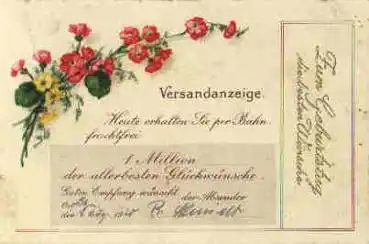 Versandanzeige.
Heute erhalten Sie per Bahn
frachtfrei
1 Million
der allerbesten Glückwünsche.
Guten Empfang wünscht der Absender
Zum Geburtstag
die besten Wünsche